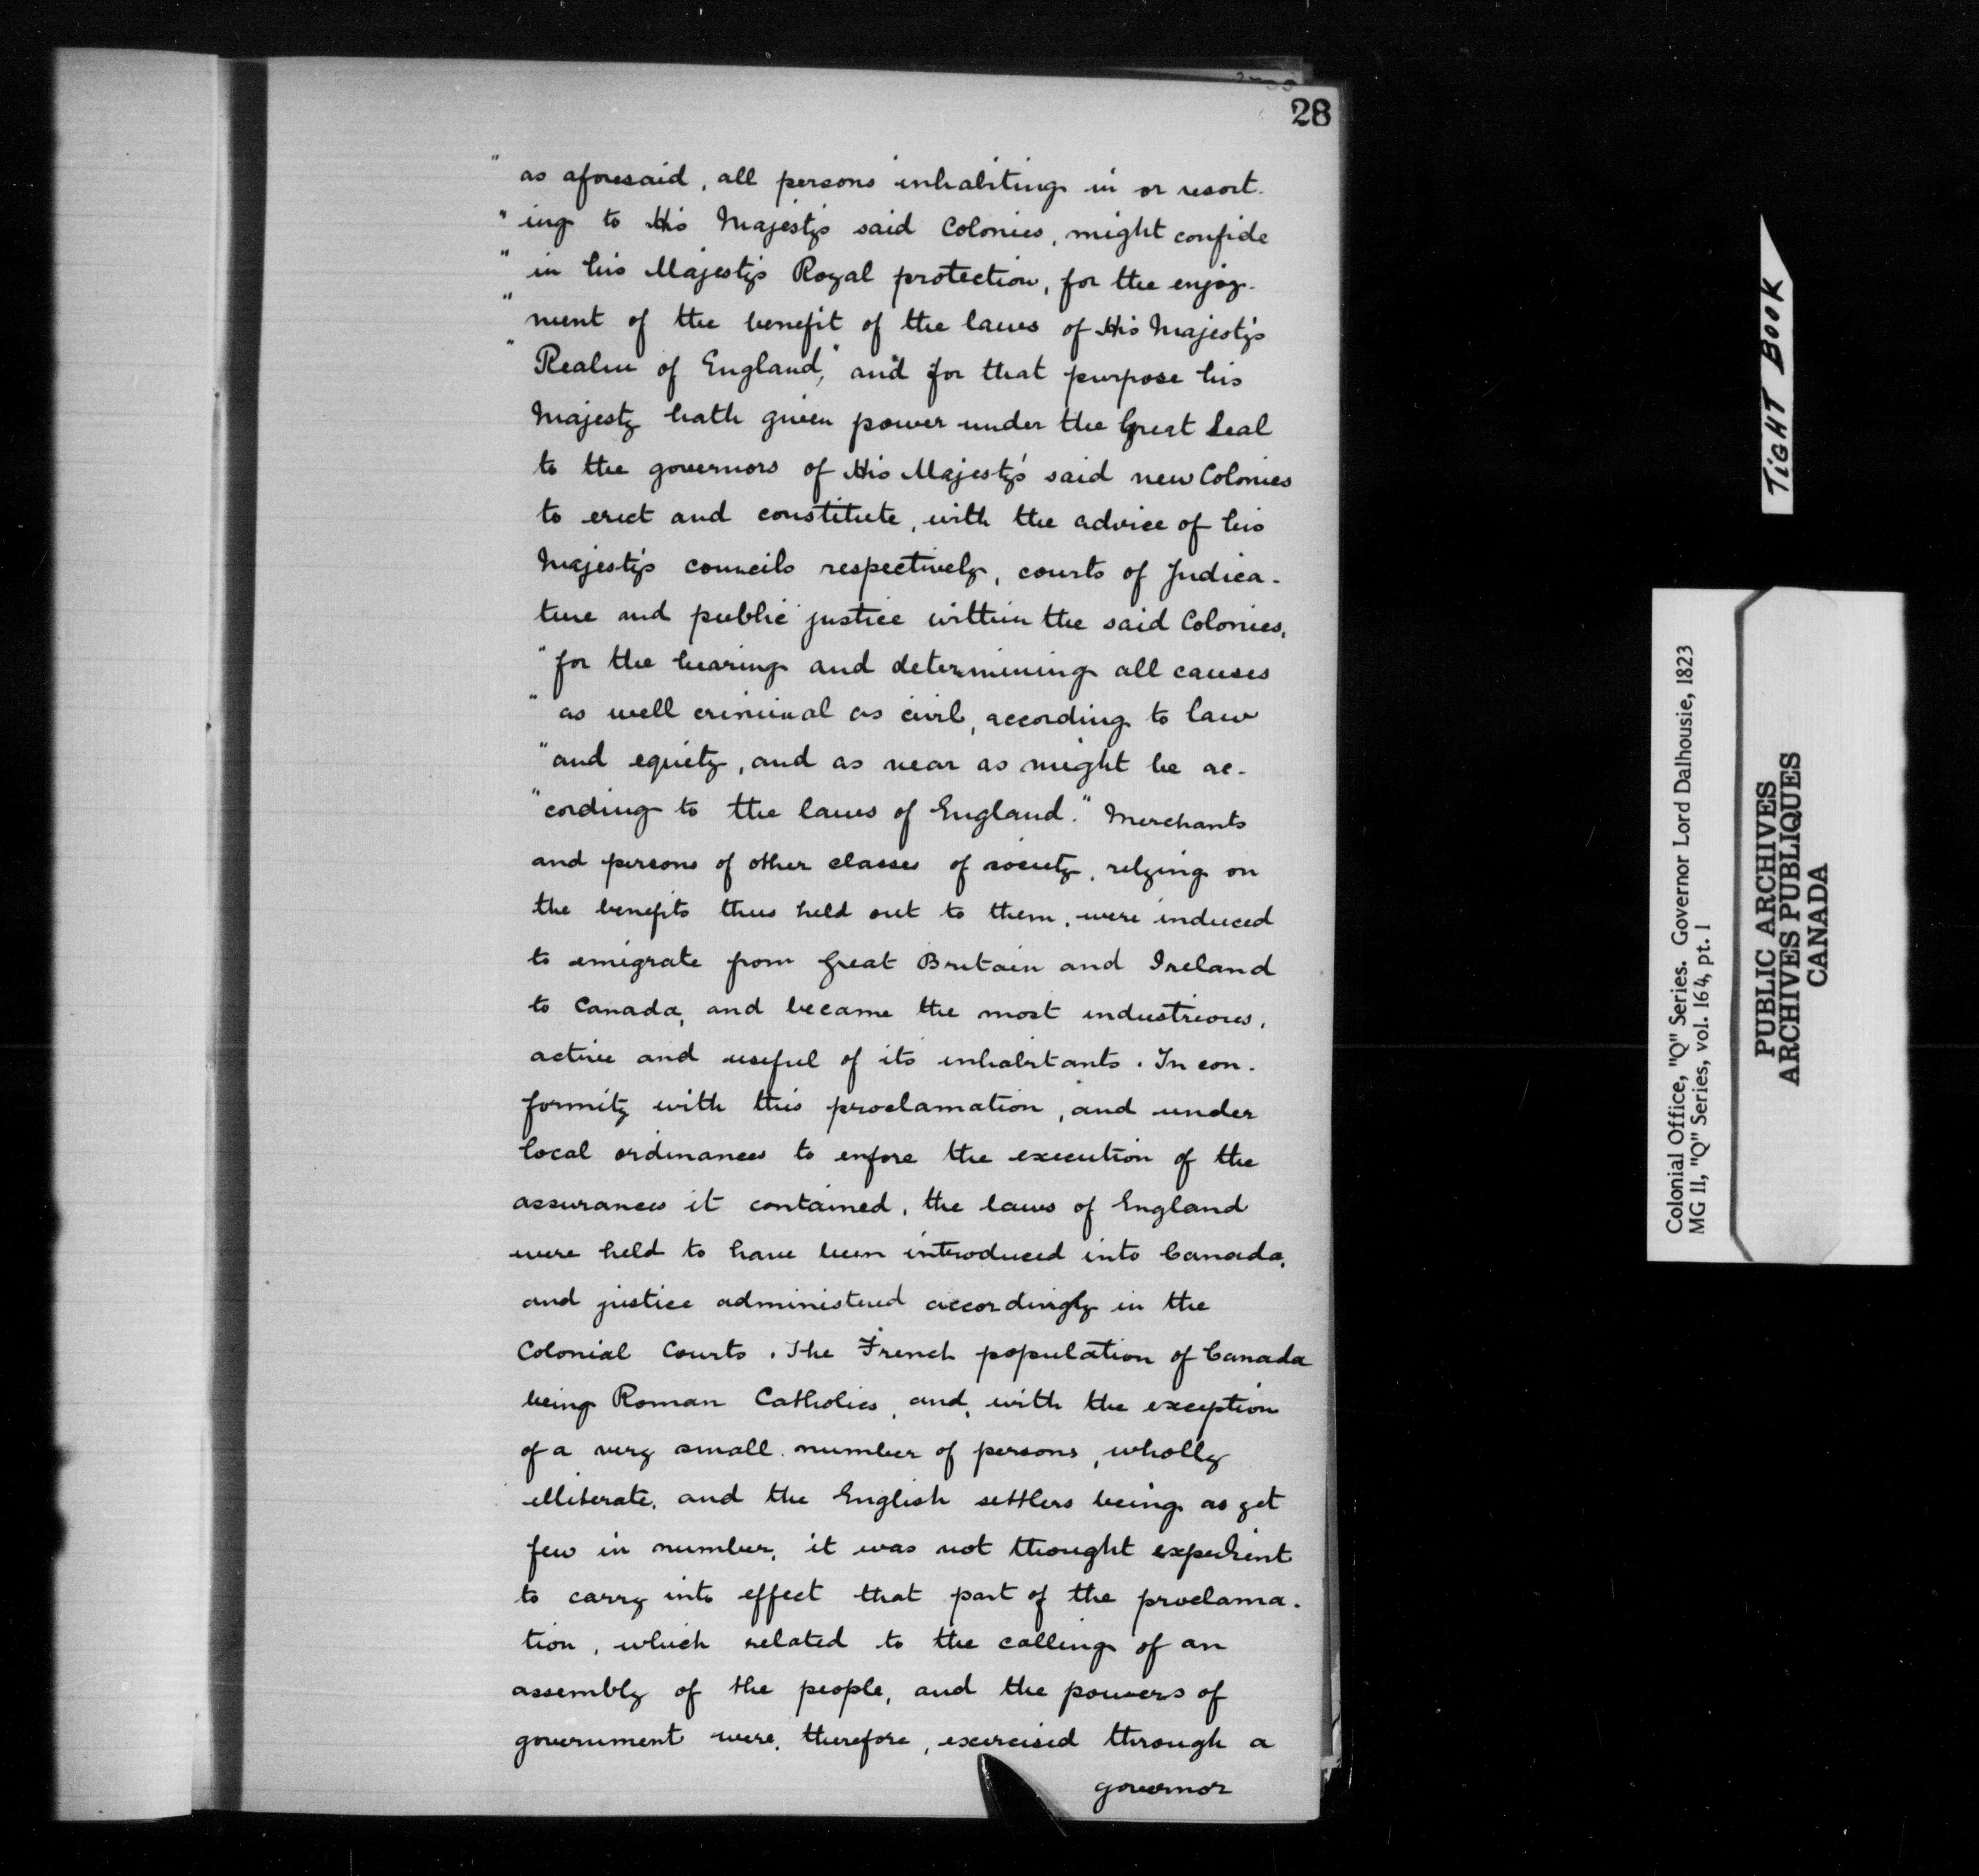 28
" as aforesaid, all persons inhabiting in or resort-
" ing to His Majesty's said Colonies, might confide
" in his Majesty's Royal protection, for the enjoy-
" ment of the benefit of the laws of His Majesty's
" Realm of England," and for that purpose his
Majesty hath given power under the Great Seal
to the governors of His Majesty's said new Colonies
to erect and constitute, with the advice of his
Majesty's councils respectively, courts of Judica-
ture and public justice within the said Colonies,
" for the hearing and determining all causes
" as well criminal as civil, according to law
" and equity, and as near as might be ac-
" cording to the laws of England." Merchants
and persons of other classes of society, relying on
the benefits thus held out to them, were induced
to emigrate from Great Britain and Ireland
to Canada, and became the most industrious,
active and useful of its inhabitants. In con-
formity with this proclamation, and under
local ordinances to enfore the execution of the
assurances it contained, the laws of England
were held to have been introduced into Canada,
and justice administered accordingly in the
Colonial Courts. The French population of Canada
being Roman Catholics, and, with the exception
of a very small number of persons, wholly
illiterate, and the English settlers being as yet
few in number, it was not thought expedient
to carry into effect that part of the proclama-
tion, which related to the calling of an
assembly of the people, and the powers of
government were, therefore, exercised through a
governor
TIGHT BOOK
Colonial Office, "Q" Series. Governor Lord Dalhousie, 1823
MG 11, "Q" Series, vol. 164, pt. 1
PUBLIC ARCHIVES
ARCHIVES PUBLIQUES
CANADA